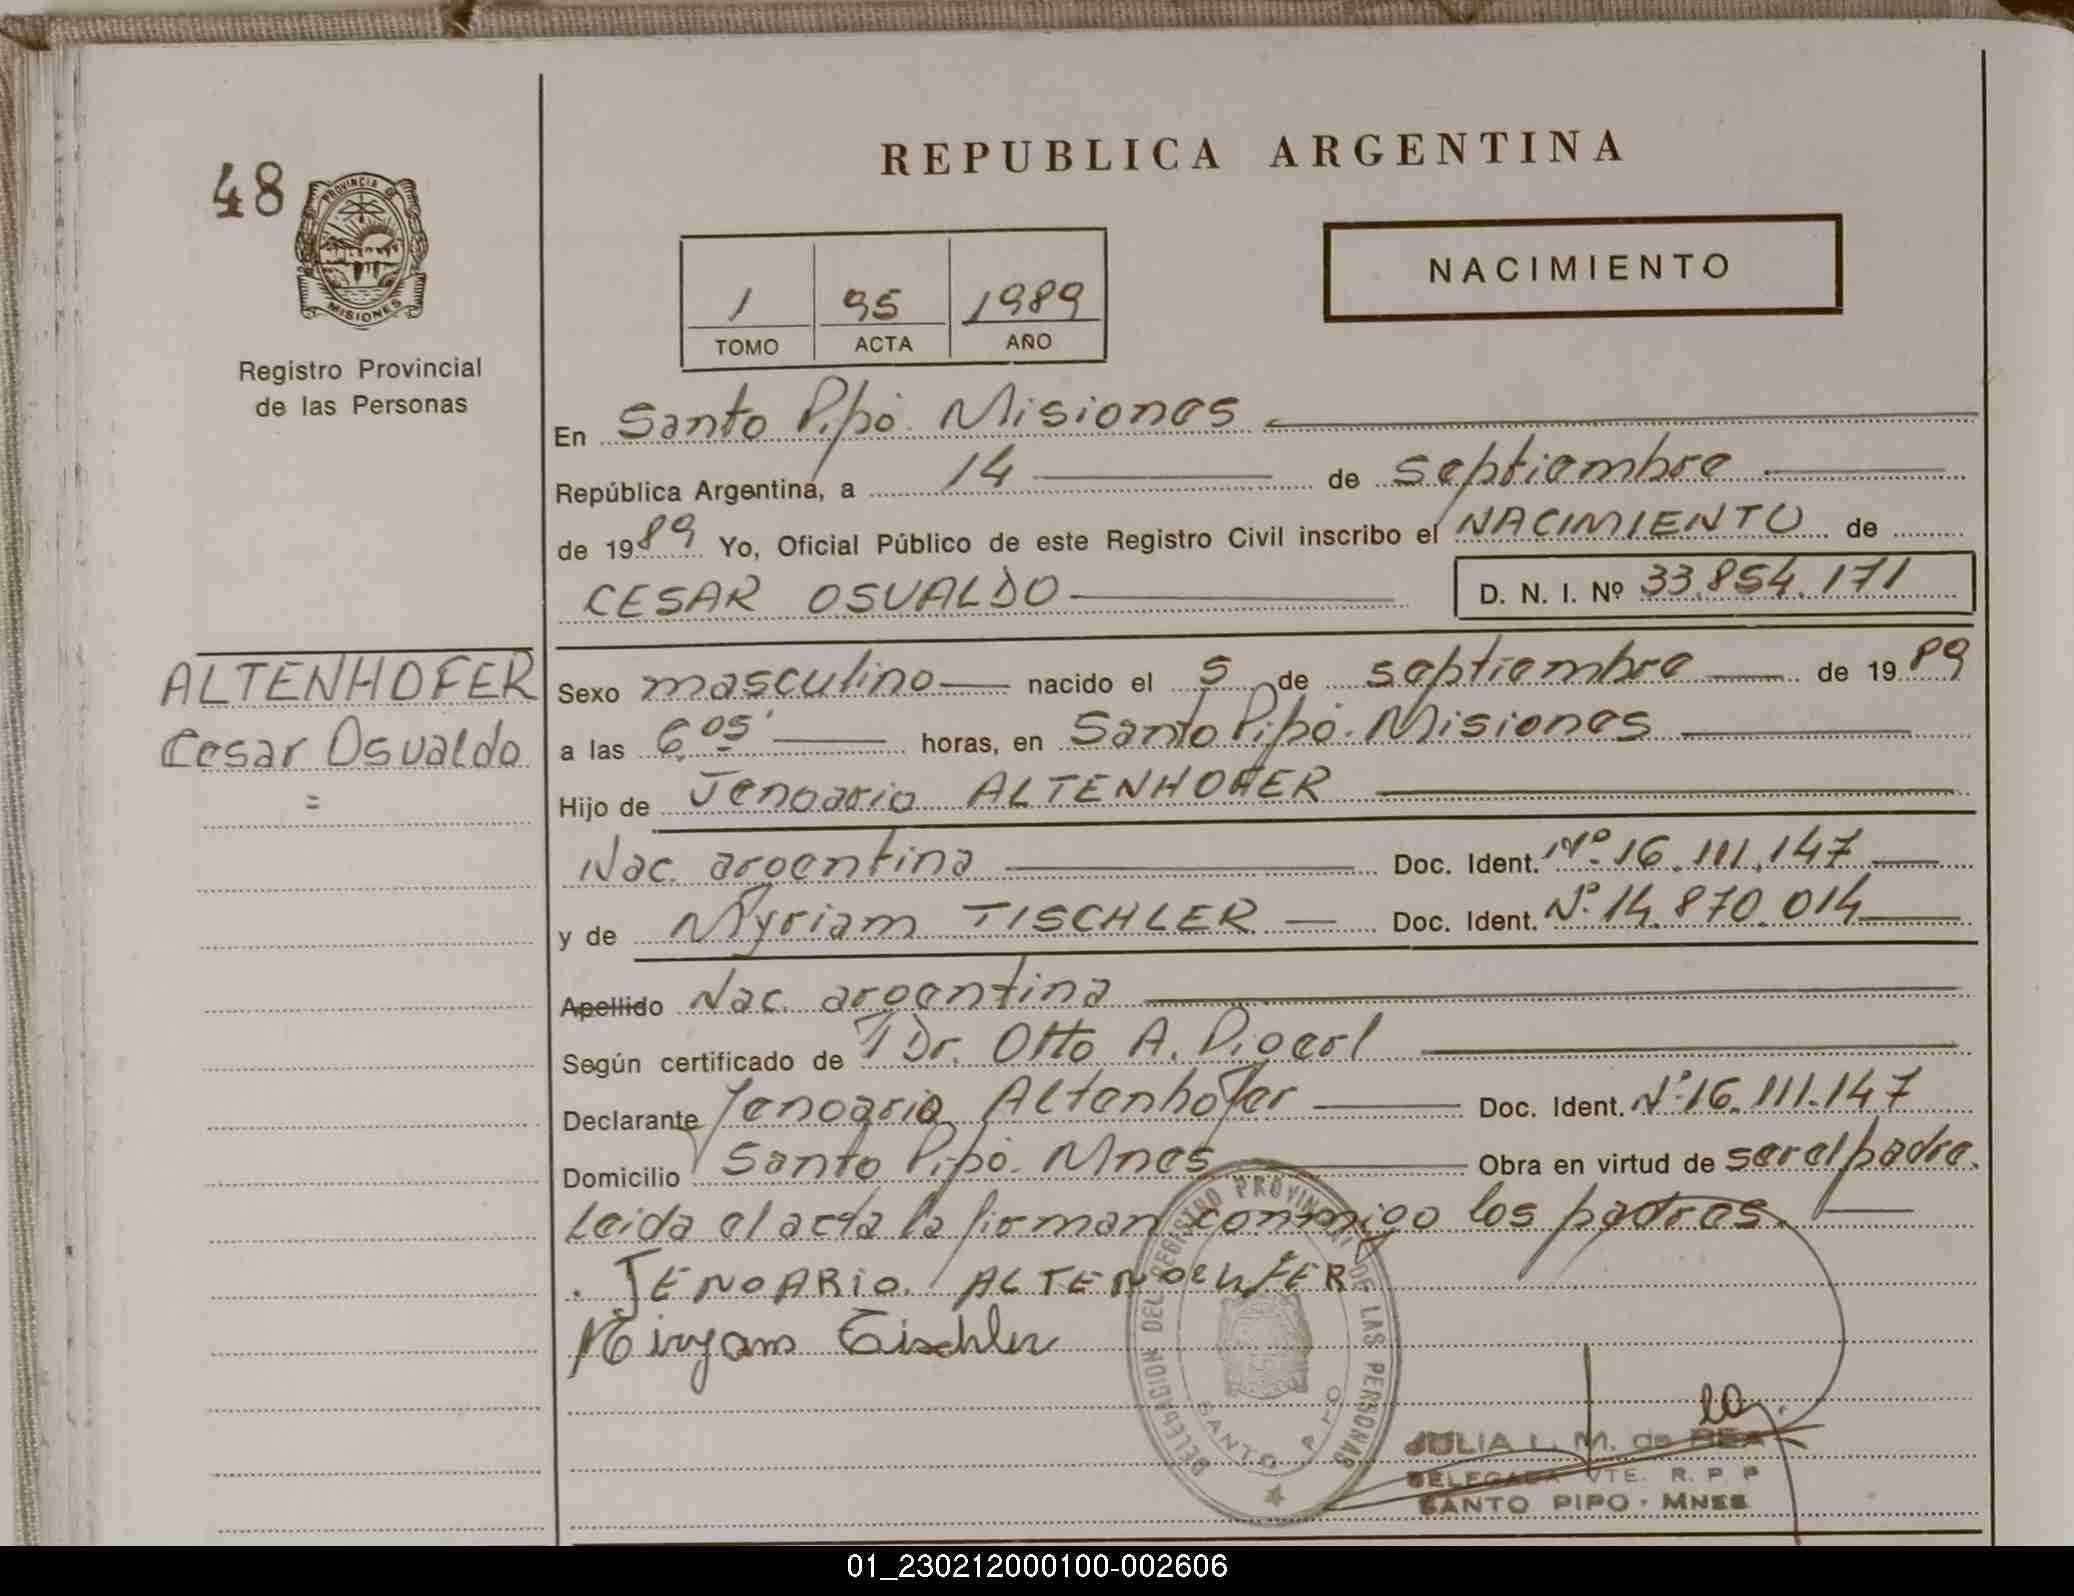 REPUBLICA ARGENTINA
48
PROVINCIA DE
MISIONES
NACIMIENTO
1 95 1989
TOMO ACTA AÑO
Registro Provincial
de las Personas
En Santo Pipó. Misiones
República Argentina, a 14 de septiembre
de 1989 Yo, Oficial Público de este Registro Civil inscribo el NACIMIENTO de
CESAR OSVALDO D. N. I. Nº 33.854.171
ALTENHOFER
Cesar Osvaldo
=
Sexo masculino nacido el 5 de septiembre de 1989
a las 6,05' horas, en Santo Pipó. Misiones
Hijo de Jenoario ALTENHOFER
Nac. argentina Doc. Ident. Nº 16.111.147
y de Myriam TISCHLER Doc. Ident. Nº 14.870.014
Apellido Nac. argentina
Según certificado de Dr. Otto A.
Declarante Jenoario Altenhofer Doc. Ident. Nº 16.111.147
Domicilio Santo Pipó. Mnes Obra en virtud de ser el padre.
Leida el acta la firman conmigo los padres.
JENOARIO. ALTENOEHFER
Miryam Tischler
DELEGACION DEL REGISTRO PROVINCIAL DE LAS PERSONAS
SANTO PIPO
JULIA L. M. de BEA
DELEGADA VTE. R. P. P
SANTO PIPO - MNES
01_230212000100-002606